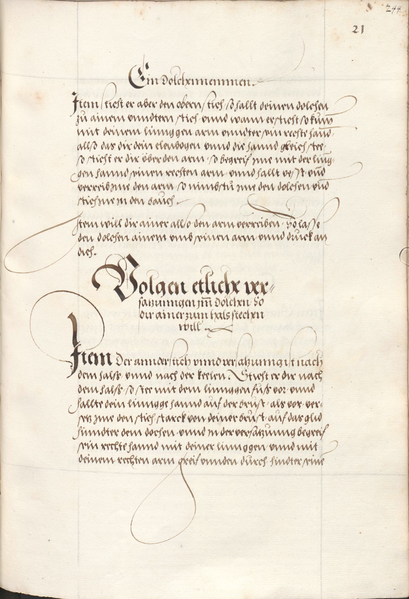 244
21
Ein dolchennemmen.
Item stest er aber den obern stich so hallt deinen dolchen
zu ainem undtern stich und wann er sticht so kum
mit deinem linggen arm under sein rechte hand
also das dir dein elenbogen und die hand gleich stee
so sticht er dir über den arm so begreif ime mit der ling-
gen hannd seinen rechten arm und hallt vest und
verreib ime den arm so nimbstu ime den dolchen und
stich ine in den bauch
Item will dir ainer also den arm verreiben so lasse
den dolchen ainem umb seinen arm und druck an
dich.
Volgen etliche ver-
satzunngen zum dolchen so
dir ainer zum hals stechen
will
Item der annder stich unnd versatzung ist nach
dem halss unnd nach der keelen Sticht er dir nach
dem halss so stee mit dem linnggen fuss vor unnd
hallt dein lingge hannd auf der brust als vor ver-
setz ime den stich starck von deiner brust auf das glid
hinndter dem dolchen unnd in der versatzung begreif
sein rechte hannd mit deiner linggen unnd mit
deinem rechten arm greif unnden durch hindter seine